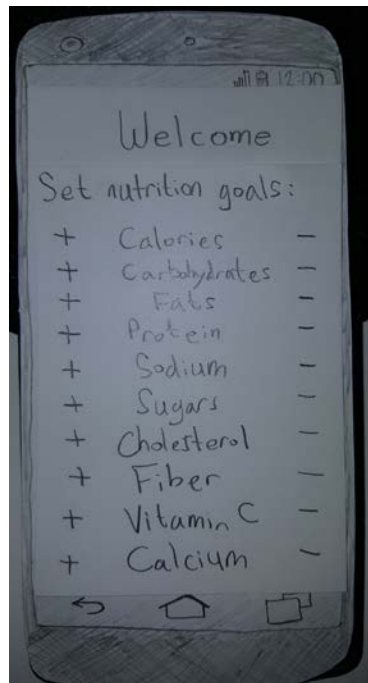 12:00
Welcome
Set nutrition goals:
+ Calories –
+ Carbohydrates –
+ Fats –
+ Protein –
+ Sodium –
+ Sugars –
+ Cholesterol –
+ Fiber –
+ Vitamin C –
+ Calcium –